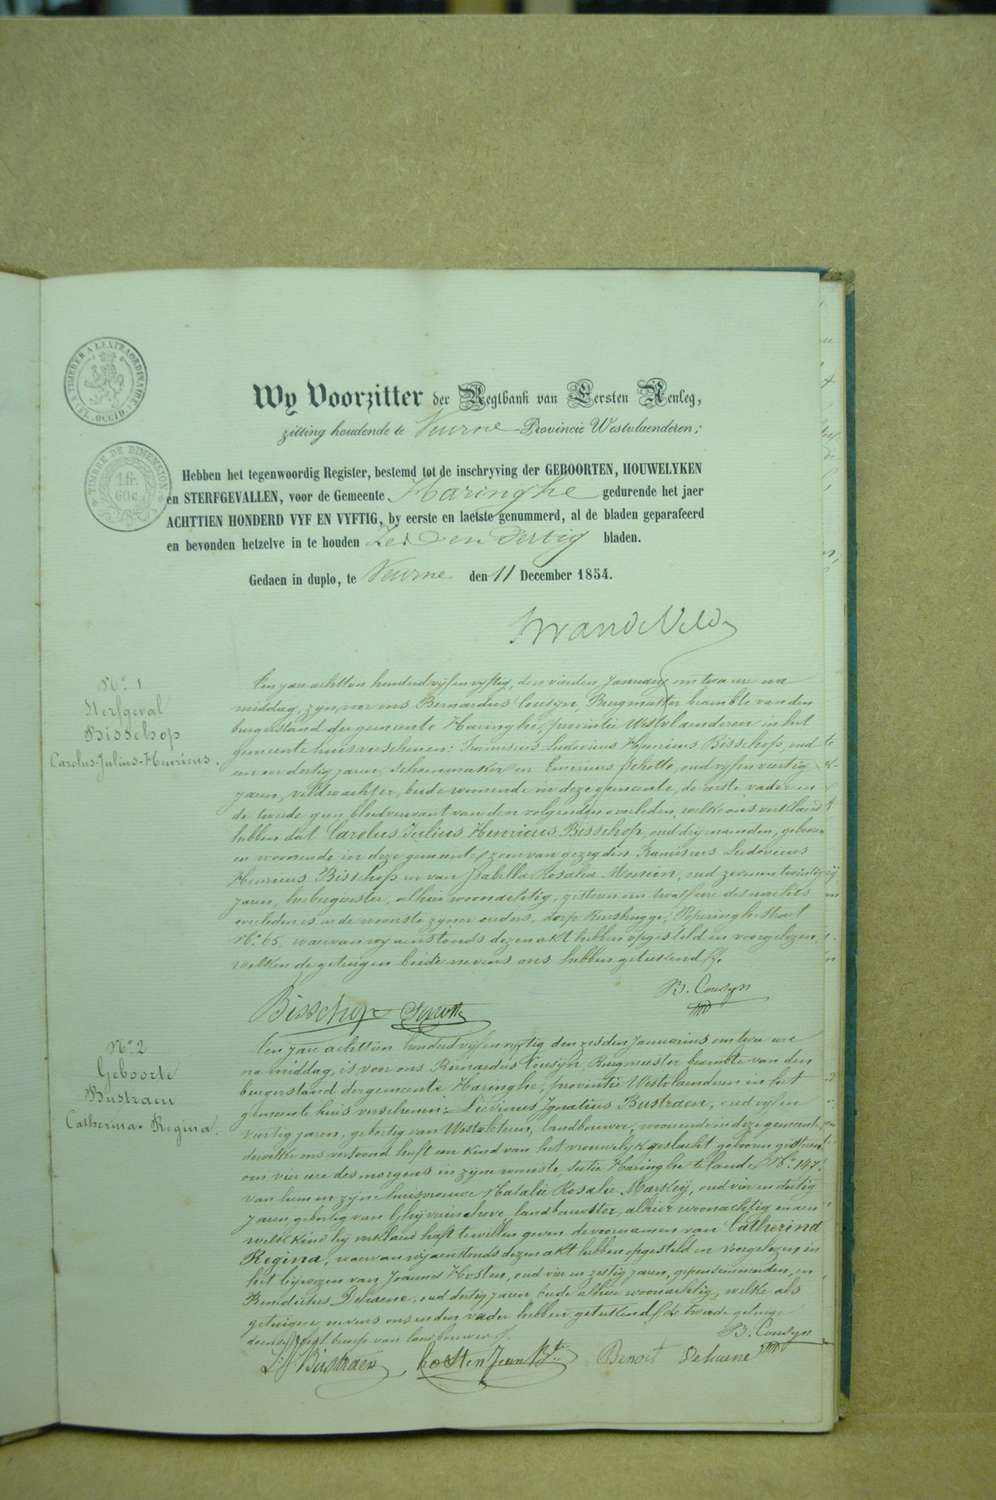 TIMBRE A L'EXTRAORDINAIRE
FL. OCCID.
TIMBRE DE DIMENSION
1 fr.
60 c.
Wy Voorzitter der Regtbank van Eersten Aenleg,
zitting houdende te Veurne Provincie Westvlaenderen;
Hebben het tegenwoordig Register, bestemd tot de inschryving der GEBOORTEN, HOUWELYKEN
en STERFGEVALLEN, voor de Gemeente Haringhe gedurende het jaer
ACHTTIEN HONDERD VYF EN VYFTIG, by eerste en laetste genummerd, al de bladen geparafeerd
en bevonden hetzelve in te houden Zes en dertig bladen.
Gedaen in duplo, te Veurne den 11 December 1854.
N.º 1
Sterfgeval
Bisschop
Carolus-Julius-Henricus.
Een jaar achttien honderd vyf en vyftig, den vierden January om twa ure na
middag, zyn voor ons Bernardus Cousyn, Burgmeester beambte van den
burgerstand der gemeente Haringhe, provintie Westvlaenderen in het
gemeente huis verschenen: Franciscus Ludovicus Henricus Bisschop, oud
een en dertig jaren, schoenmaker en Emericus Schotte, oud vyf en veertig
jaren, veldwachter, beide woonende in deze gemeente, de eerste vader en
de tweede geen bloedverwant van den volgenden overleden, welke ons verklaard
hebben dat Carolus Julius Henricus Bisschop, oud dry maenden, geboren
en woonende in deze gemeente, zoon van gezegden Franciscus Ludovicus
Henricus Bisschop en van Isabella Rosalia, oud zeven en twintig
jaren, herbergierster, alhier woonachtig, gisteren om twalf ure des nachts
overleden is in de wooniste zyner ouders, dorp
N.º 65, waervan wy aenstonds dezen akt hebben opgesteld en voorgelezen,
welken de getuigen beide nevens ons hebben geteekend
B. Cousyn
Bisschop
N.º 2
Geboorte
Bustraen
Catherina-Regina.
Een jaar achttien honderd vyf en vyftig den zesden Januarius om twee ure
na middag, is voor ons Bernardus Cousyn, Burgmeester beambte van den
burgerstand der gemeente Haringhe, provintie Westvlaenderen in het
gemeente huis verschenen: Livinus Ignatius Bustraen, oud vyf en
veertig jaren, geboortig van Westvleteren, landbouwer, woonende in deze gemeente,
derwelke ons vertoond heeft een kind van het vrouwelyk geslacht geboren gisteren
om vier ure des morgens in zyne wooniste, sectie Haringhe te lande N.º 147
van hem en zyne huisvrouwe Natalie Rosalie, oud vier en dertig
jaren, geboortig van Ghyverinchove, landbouwster, alhier woonachtig en aen
welk kind hy verklaard heeft te willen geven de voornamen van Catherina
Regina, waervan wy aenstonds dezen akt hebben opgesteld en voorgelezen in
het bywezen van Joannes Hosten, oud vier en zestig jaren, gepensionneerden, en
Benedictus Dehaene, oud dertig jaren beide alhier woonachtig, welke als
getuigen nevens ons en den vader hebben geteekend de tweede getuige
doende het beroep van landbouwer
B. Cousyn
L. J. Bustraen hosten Jean Bte Benoit Dehaene